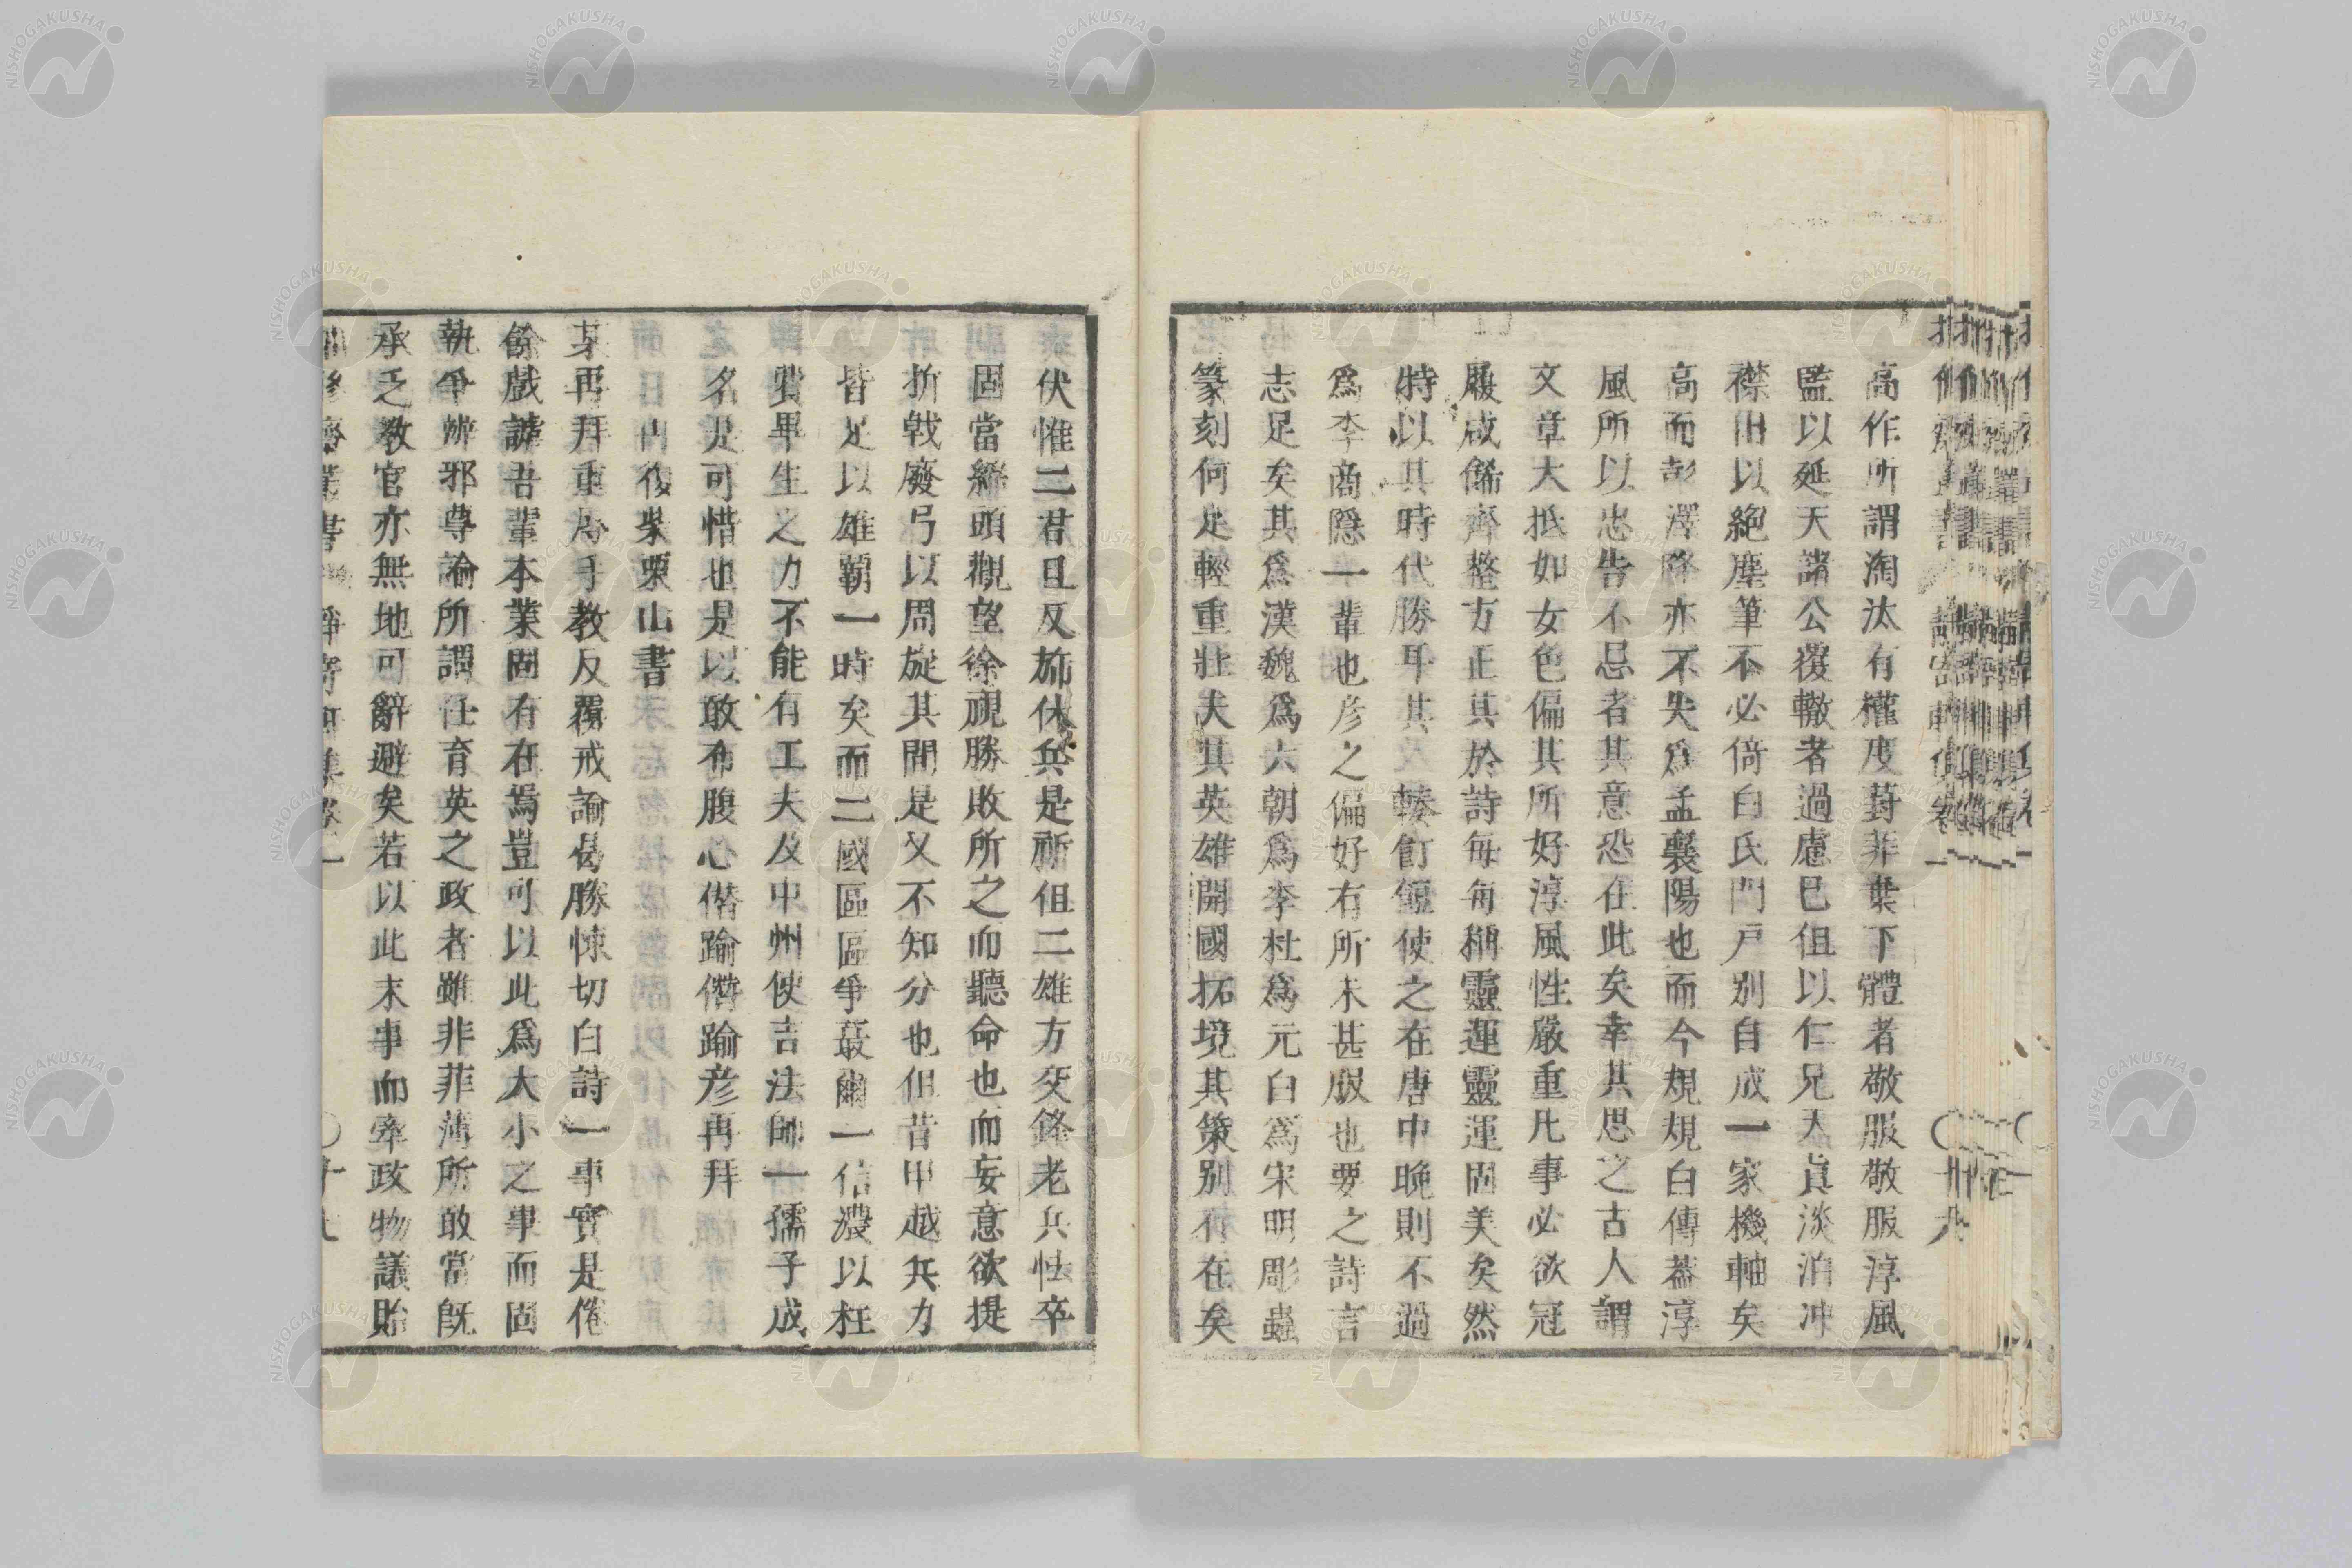 高作所謂淘汰有權度葑菲棄下體者敬服敬服淳風
監以延天諸公覆轍者過慮已但以仁兄天眞淡泊冲
襟田以絕塵筆不必倚白氏門戸別自成一家機軸矣
高而彭澤降亦不失爲孟襄陽也而今規規白傳葢淳
風所以忠告不忌者其意恐在此矣幸其思之古人謂
文章大抵如女色偏其所好淳風性嚴重凡事必欲冠
履咸備齊整方正其於詩每每稱靈運靈運固美矣然
特以其時代勝耳其輳飣餖使之在唐中晚則不過
爲李商隱一輩也彦之偏好右所未甚服也要之詩言
志足矣其爲漢魏爲六朝爲李杜爲元白爲宋明彫蟲
篆刻何足輕重壯夫其英雄開國拓境其策別有在矣
伏惟二君且反斾休兵是祈但二雄方交鋒老兵怯卒
固當縮頭觀望徐視勝敗所之而聽命也而妄意欲提
折戟廢弓以周旋其間是又不知分也但昔甲越兵力
皆足以雄覇一時矣而二國區區爭蕞爾一信濃以枉
費畢生之力不能有工夫及中州使吉法師一孺子成
名是可惜也是以敢布腹心僭踰僭踰彦再拜
復柴栗山書
某再拜重為手教反覆戒諭曷勝悚切白詩一事實是倦
餘戲謔吾輩本業固有在焉豈可以此爲大小之事而固
執爭辨邪尊諭所謂任育英之政者雖非菲薄所敢當旣
承乏敎官亦無地可辭避矣若以此末事而牽政物議貽